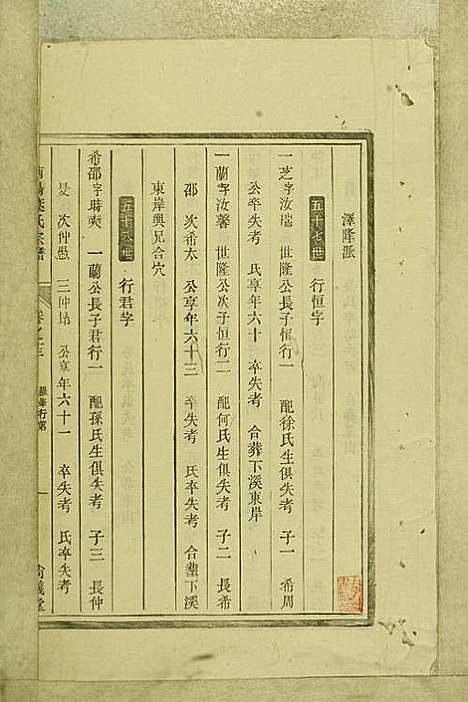 澤隆派
五十七世 行恒字
一芝字汝瑞 世隆公長子恒行一 配徐氏生俱失考 子一 希周
公卒失考 氏享年六十 卒失考 合葬下溪東岸
一蘭字汝馨 世隆公次子恒行二 配何氏生俱失考 子二 長希
邵 次希太 公享年六十三 卒失考 氏卒失考 合葬下溪
東岸與兄合穴
五十八世 行君字
希邵字時爽 一蘭公長子君行一 配孫氏生俱失考 子三 長仲
旻 次仲愚 三仲 公享年六十一 卒失考 氏卒失考
氏宗譜 卷之三 行第 尚義堂